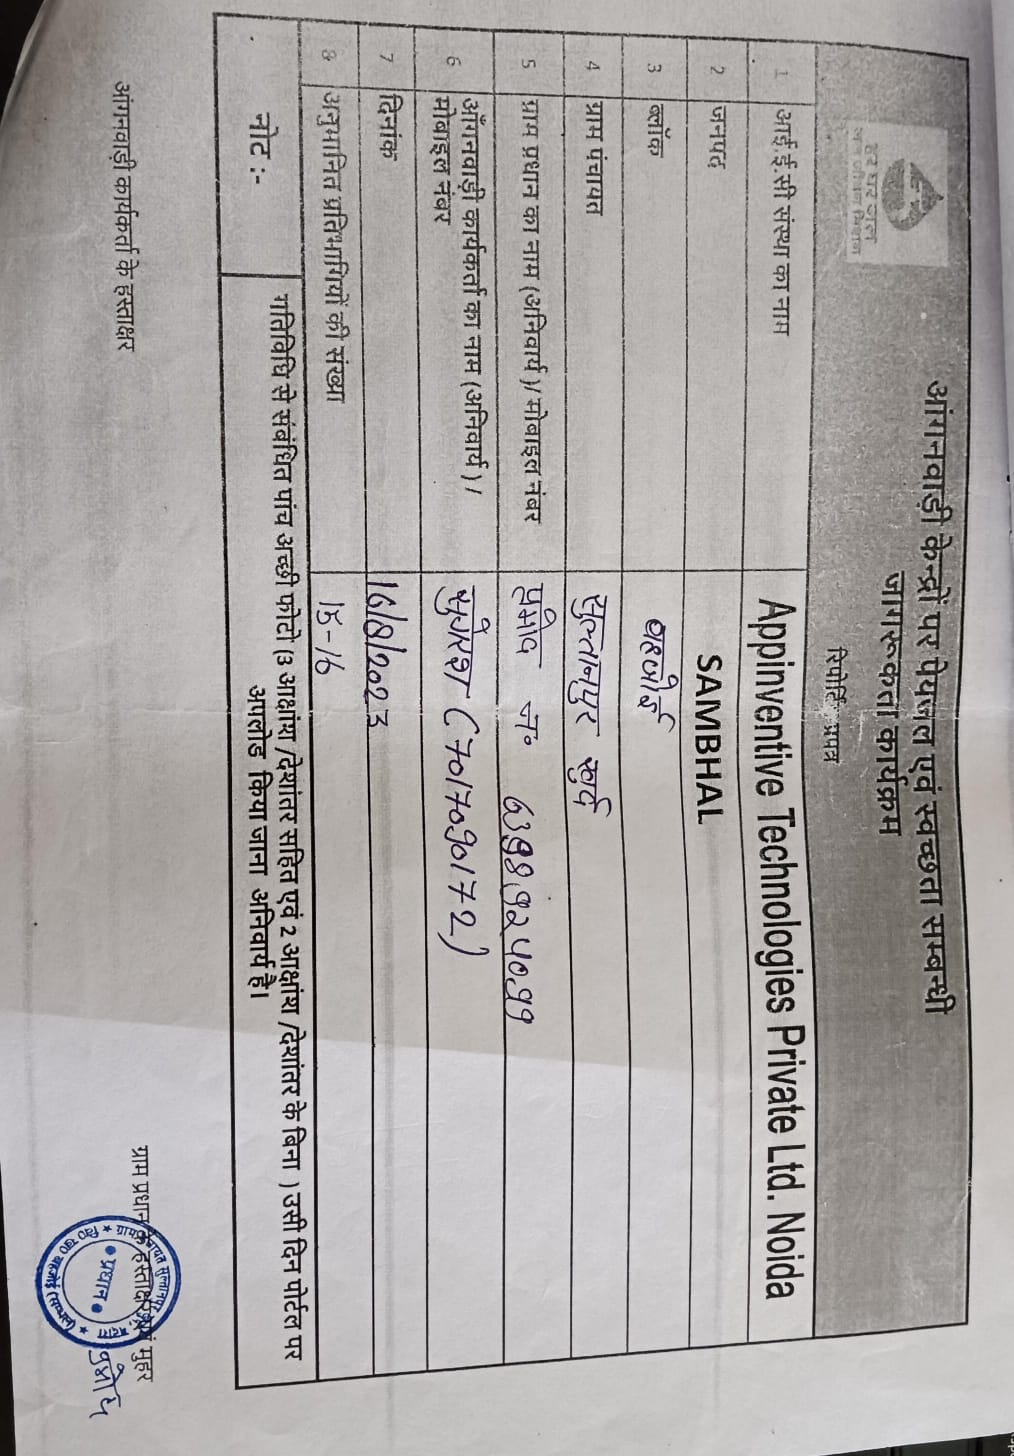 आंगनवाड़ी केन्द्रों पर पेयजल एवं स्वच्छता सम्बन्धी
जागरूकता कार्यक्रम
रिपोर्टिंग प्रपत्र
हर घर जल
जल जीवन मिशन
1 आई.ई.सी संस्था का नाम Appinventive Technologies Private Ltd. Noida
2 जनपद SAMBHAL
3 ब्लॉक बहजोई
4 ग्राम पंचायत सुल्तानपुर खुर्द
5 ग्राम प्रधान का नाम (अनिवार्य)/ मोबाइल नंबर प्रमोद न०
6 आँगनवाड़ी कार्यकर्ता का नाम (अनिवार्य )/
मोबाइल नंबर (7017090172)
7 दिनांक 16/8/2023
8 अनुमानित प्रतिभागियों की संख्या 15-16
नोट :- गतिविधि से संबंधित पांच अच्छी फोटो (3 आक्षांश /देशांतर सहित एवं 2 आक्षांश /देशांतर के बिना ) उसी दिन पोर्टल पर
अपलोड किया जाना अनिवार्य है।
आंगनवाड़ी कार्यकर्ता के हस्ताक्षर
ग्राम प्रधान के हस्ताक्षर एवं मुहर
प्रधान
प्रमोद